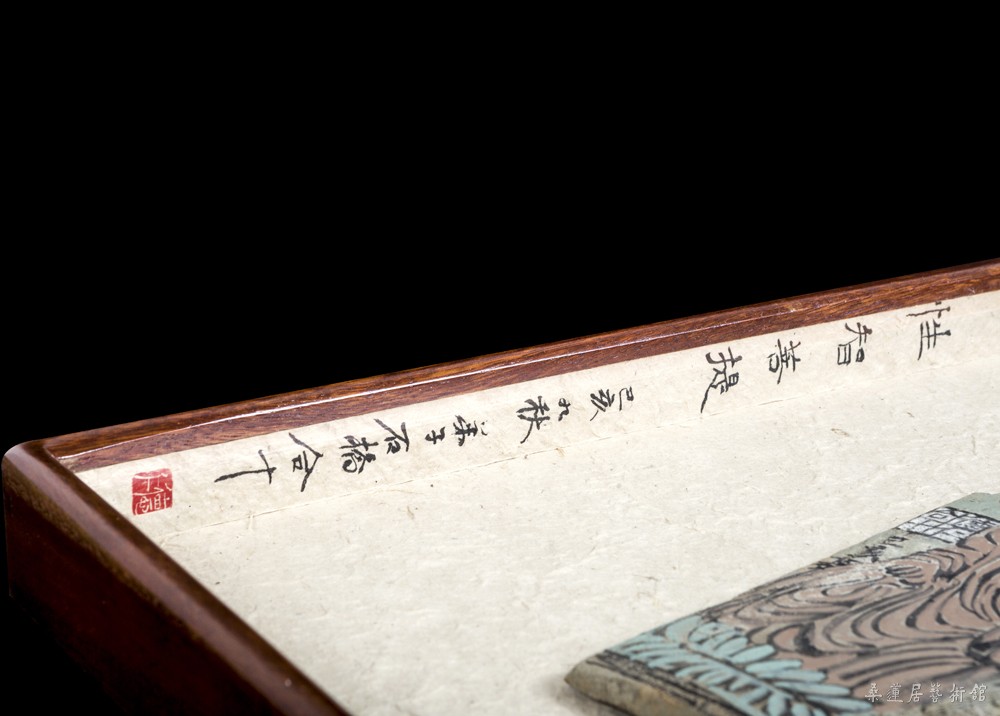 性智菩提
己亥九秋弟子石桥合十
桑蓮居藝術館